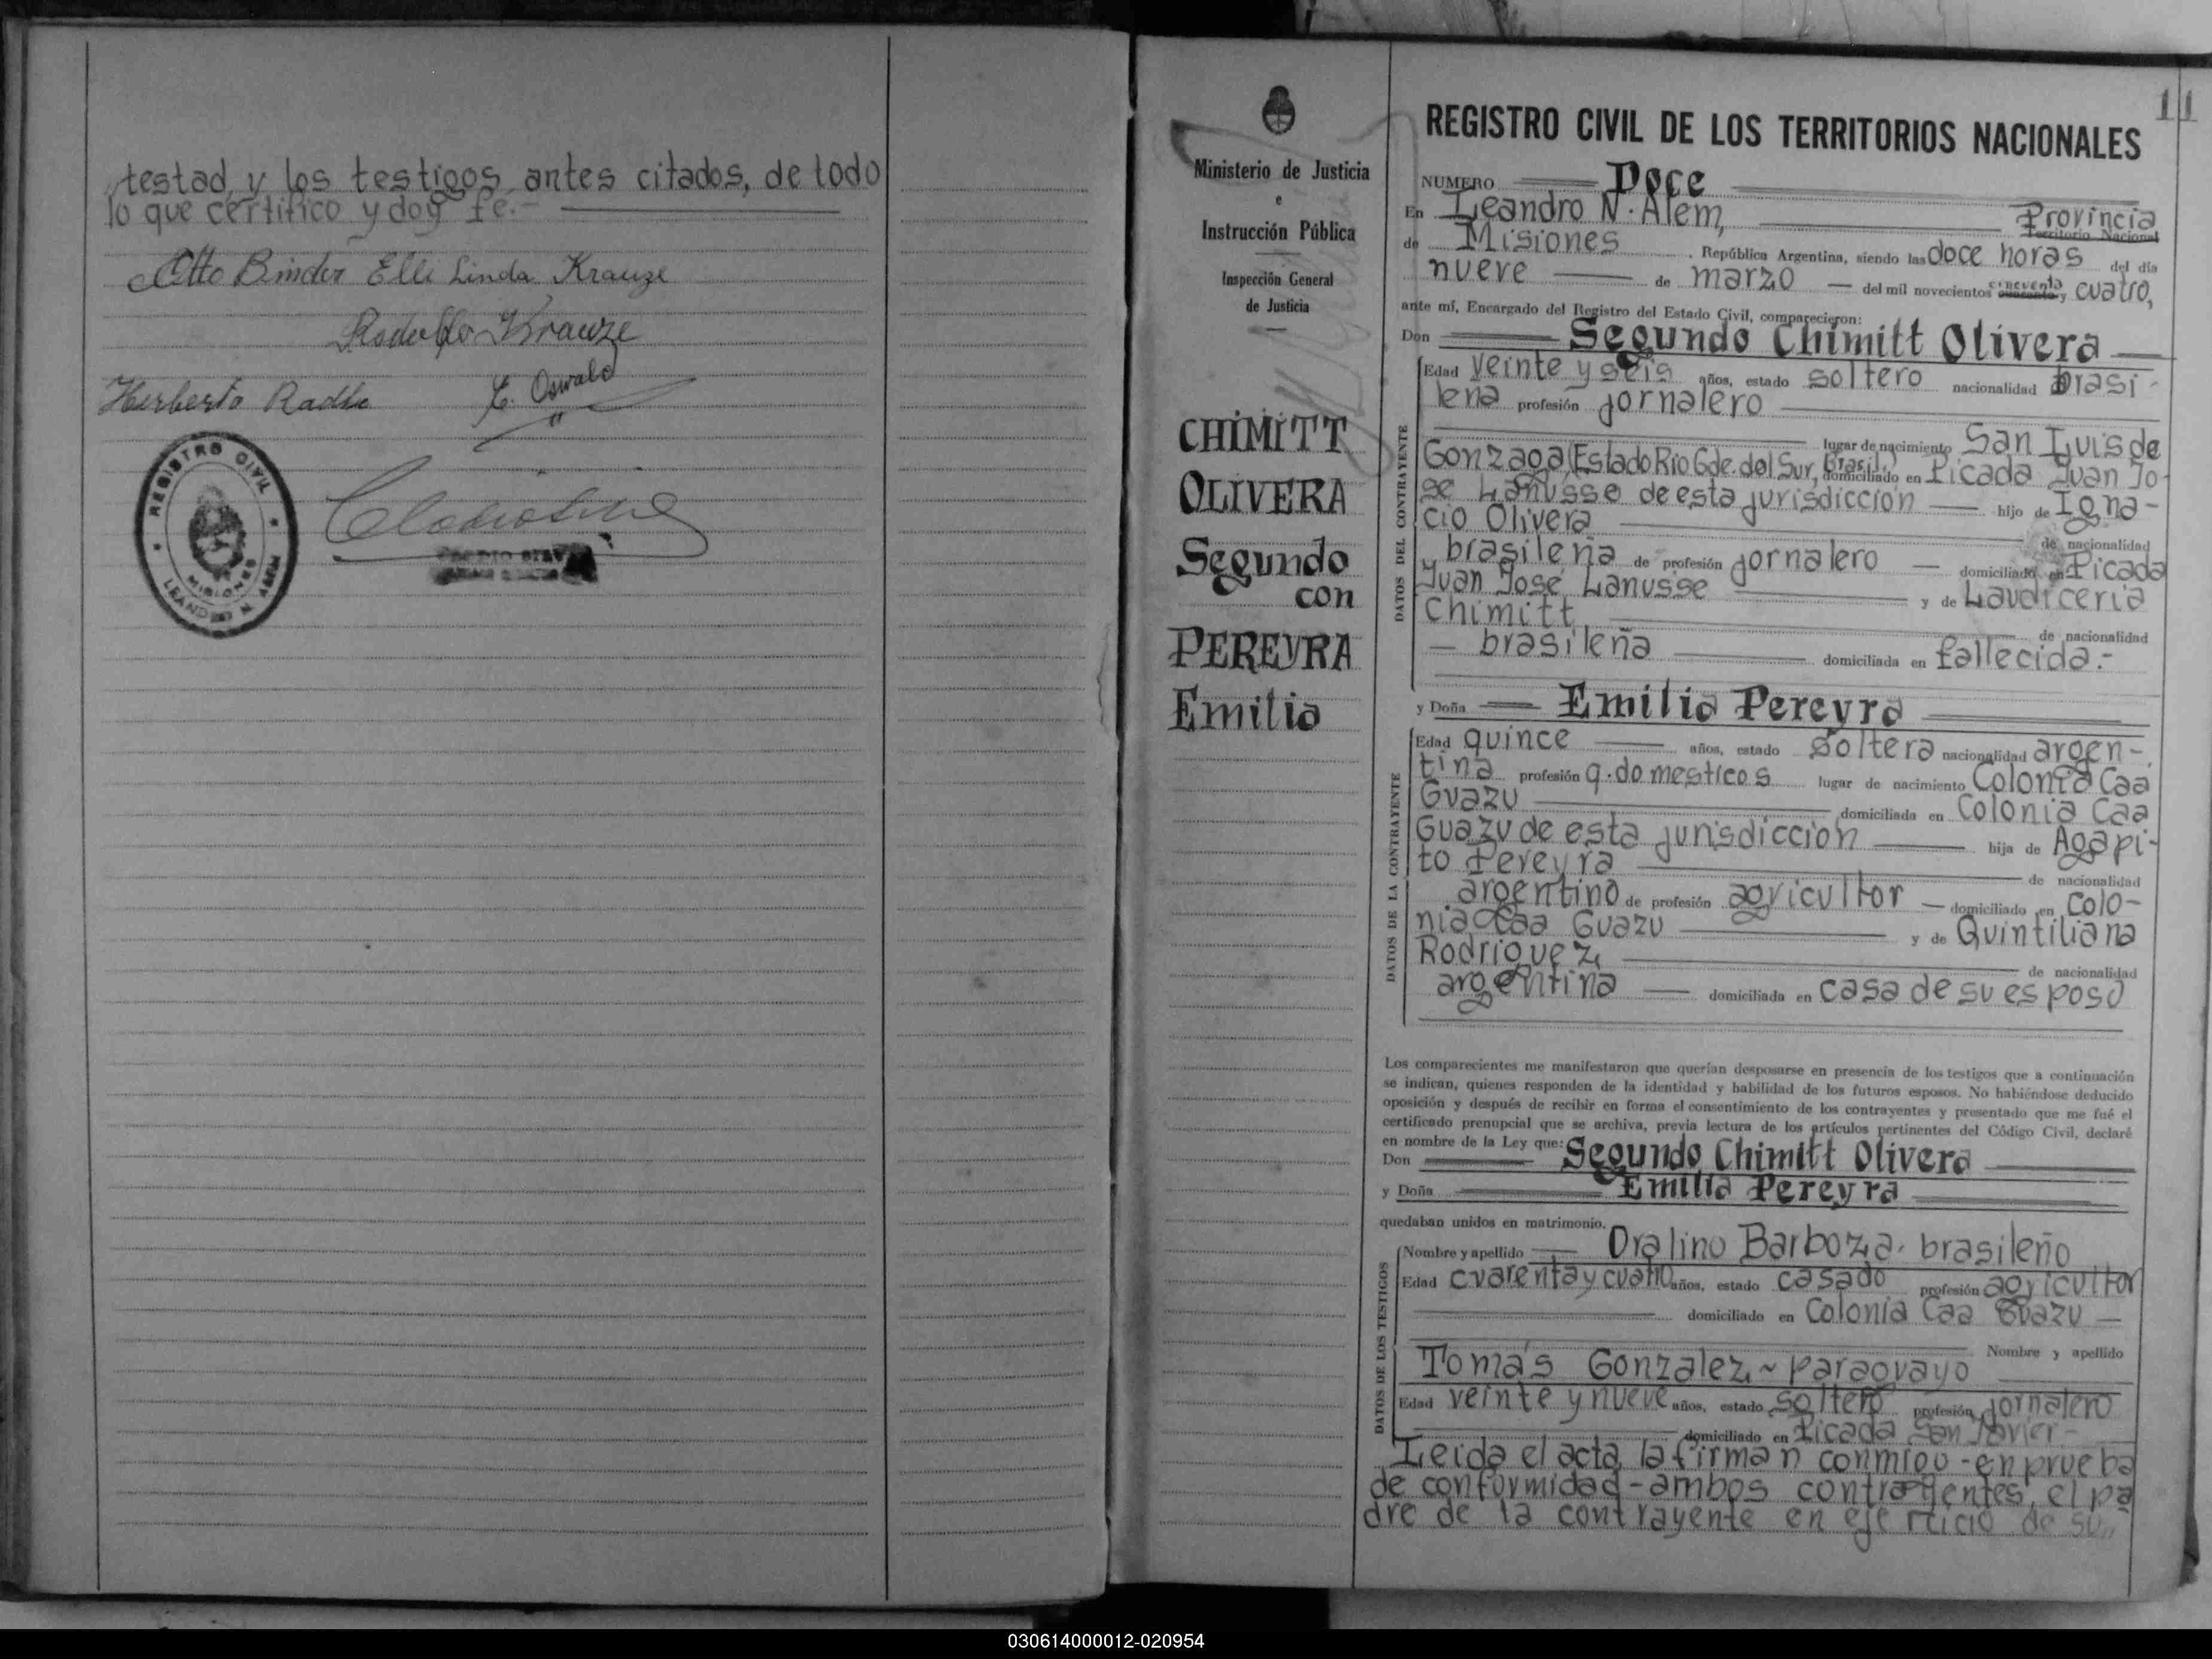 testad, y los testigos antes citados, de todo
lo que certifico y doy fe.-
Otto Binder Elli Linda Krauze
Rodolfo Krauze
Herberto Radke E. Oswald
REGISTRO CIVIL
MISIONES
LEANDRO N. ALEM
11
Ministerio de Justicia
e
Instrucción Pública
Inspección General
de Justicia
CHIMITT
OLIVERA
Segundo
con
PEREYRA
Emilia
REGISTRO CIVIL DE LOS TERRITORIOS NACIONALES
NUMERO Doce
En Leandro N. Alem, Provincia
Territorio Nacional
de Misiones República Argentina, siendo las doce horas del día
nueve de marzo del mil novecientos cincuenta y cuatro,
ante mí, Encargado del Registro del Estado Civil, comparecieron:
Don Segundo Chimitt Olivera
Edad veinte y seis años, estado soltero nacionalidad brasi-
leña profesión jornalero
lugar de nacimiento San Luis de
Gonzaga (Estado Rio Gde. del Sur, Brasil) domiciliado en Picada Juan Jo-
se Lanusse de esta jurisdiccion hijo de Igna-
cio Olivera
de nacionalidad
brasileña de profesión jornalero domiciliado en Picada
Juan José Lanusse y de Laudiceria
Chimitt
de nacionalidad
brasileña domiciliada en fallecida.-
DATOS DEL CONTRAYENTE
y Doña Emilia Pereyra
Edad quince años, estado soltera nacionalidad argen-
tina profesión q. domesticos lugar de nacimiento Colonia Caa
Guazu domiciliada en Colonia Caa
Guazu de esta jurisdiccion hija de Agapi-
to Pereyra
de nacionalidad
argentino de profesión agricultor domiciliado en Colo-
nia Caa Guazu y de Quintiliana
Rodriguez
de nacionalidad
argentina domiciliada en casa de su esposo
DATOS DE LA CONTRAYENTE
Los comparecientes me manifestaron que querían desposarse en presencia de los testigos que a continuación
se indican, quienes responden de la identidad y habilidad de los futuros esposos. No habiéndose deducido
oposición y después de recibir en forma el consentimiento de los contrayentes y presentado que me fué el
certificado prenupcial que se archiva, previa lectura de los artículos pertinentes del Código Civil, declaré
en nombre de la Ley que:
Don Segundo Chimitt Olivera
y Doña Emilia Pereyra
quedaban unidos en matrimonio.
Nombre y apellido Oralino Barboza, brasileño
Edad cuarenta y cuatro años, estado casado profesión agricultor
domiciliado en Colonia Caa Guazu
Nombre y apellido
Tomás Gonzalez ~ paraguayo
Edad veinte y nueve años, estado soltero profesión jornalero
domiciliado en Picada San Javier-
DATOS DE LOS TESTIGOS
Leida el acta, la firman conmigo - en prueba
de conformidad - ambos contrayentes, el pa
dre de la contrayente en ejercicio de su,,
030614000012-020954